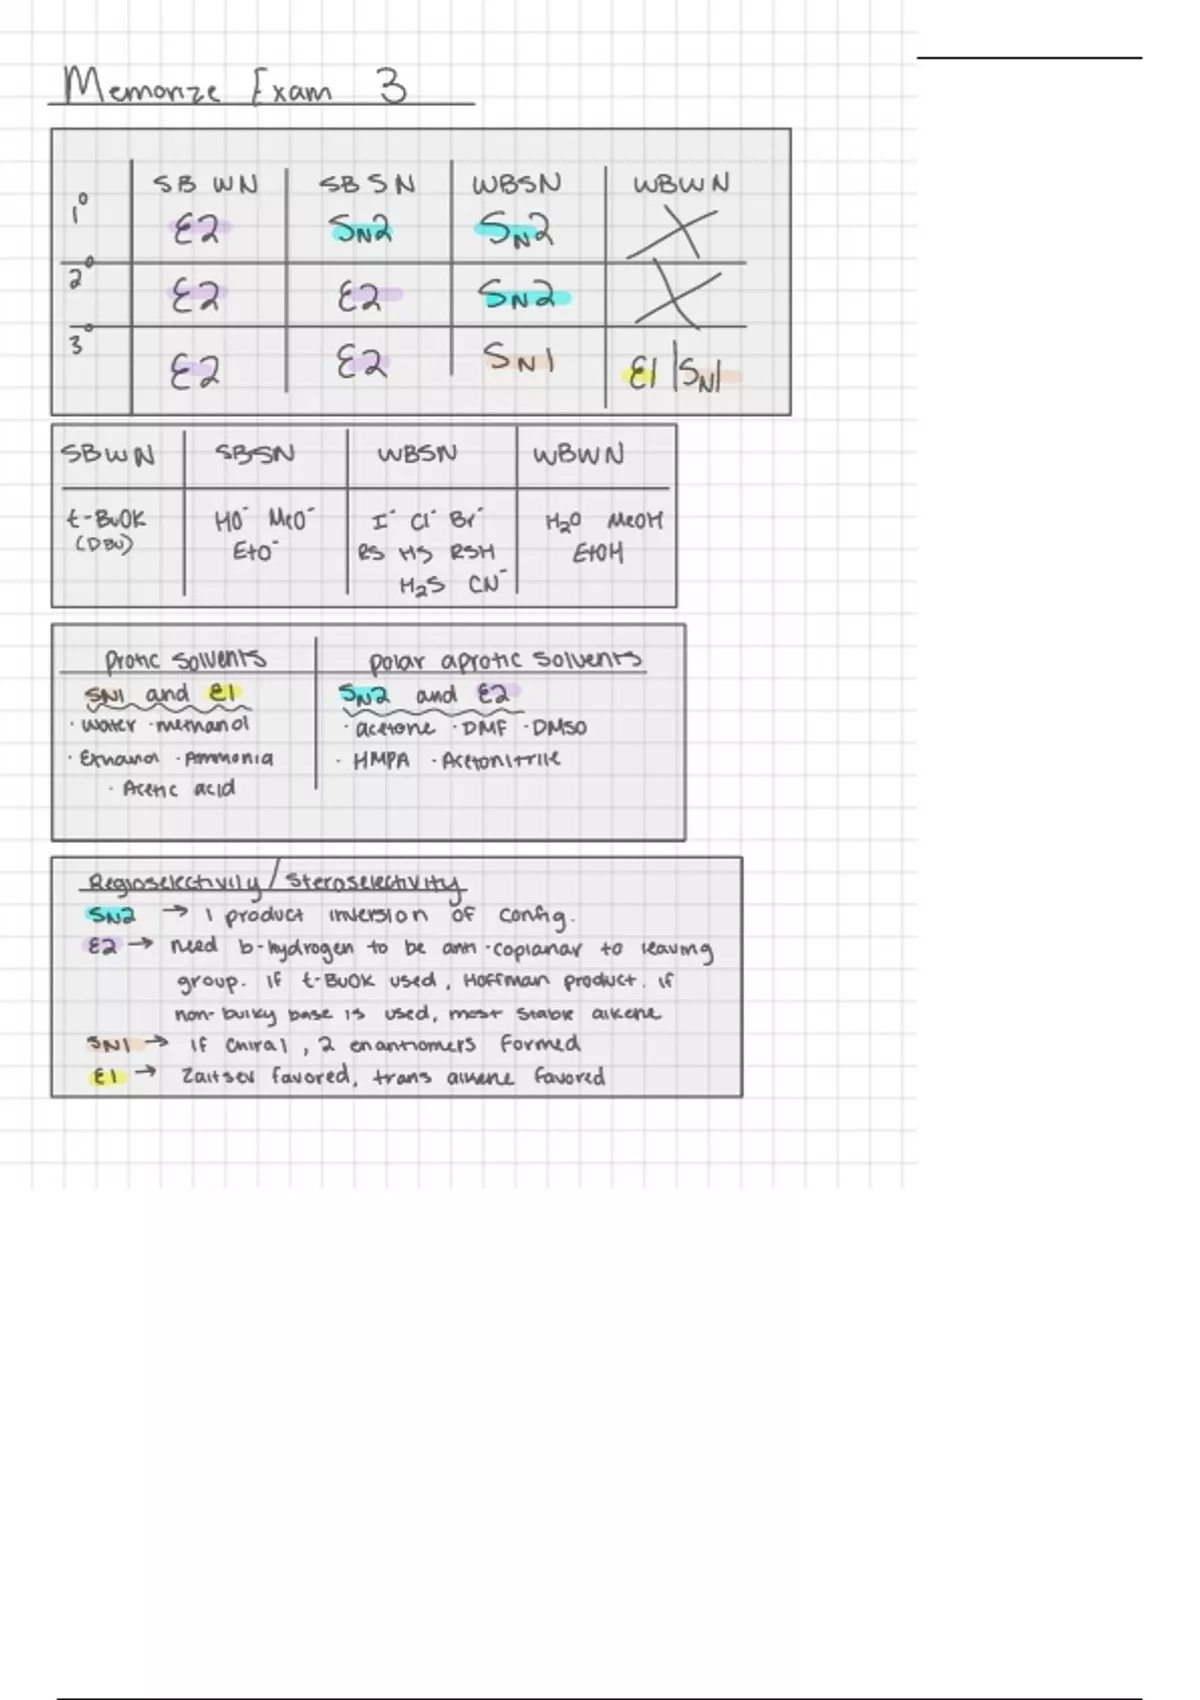 Memorize Exam 3
SB WN SB SN WBSN WBWN
1° E2 SN2 SN2 X
2° E2 E2 SN2 X
3° E2 E2 SN1 E1 | SN1
SBWN SBSN WBSN WBWN
t-BuOK HO⁻ MeO⁻ I⁻ Cl⁻ Br⁻ H2O MeOH
(DBU) EtO⁻ RS HS RSH EtOH
H2S CN⁻
protic solvents polar aprotic solvents
SN1 and E1 SN2 and E2
· water · methanol · acetone · DMF · DMSO
· Ethanol · Ammonia · HMPA · Acetonitrile
· Acetic acid
Regioselectivity / Steroselectivity
SN2 → 1 product inversion of config.
E2 → need b-hydrogen to be anti-coplanar to leaving
group. if t-BuOK used, Hoffman product. if
non-bulky base is used, most stable alkene
SN1 → if chiral, 2 enantiomers formed
E1 → Zaitsev favored, trans alkene favored